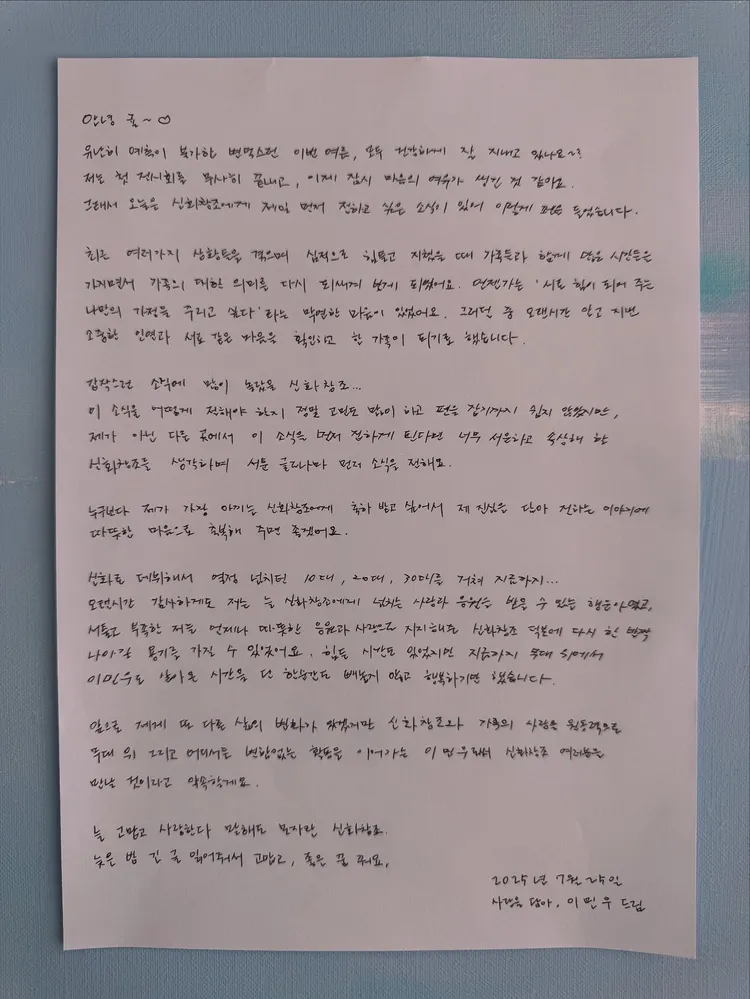 안녕 귤~♡
유난히 예측이 불가한 변덕스런 이번 여름, 모두 건강하게 잘 지내고 있나요~?
저는 첫 전시회를 무사히 끝내고, 이제 잠시 마음의 여유가 생긴 것 같아요.
그래서 오늘은 신화창조에게 제일 먼저 전하고 싶은 소식이 있어 이렇게 펜을 들었습니다.
최근 여러가지 상황들을 겪으며 심적으로 힘들고 지쳤을 때 가족들과 함께 많은 시간들은
가지면서 가족의 대한 의미를 다시 되새기게 되었어요. 언젠가는 '서로 힘이 되어 주는
나만의 가정을 꾸리고 싶다'라는 막연한 마음이 있었어요. 그러던 중 오랜시간 알고 지낸
소중한 인연과 서로 같은 마음을 확인하고 한 가족이 되기로 했습니다.
갑작스런 소식에 많이 놀랐을 신화창조...
이 소식을 어떻게 전해야 할지 정말 고민도 많이 하고 펜을 잡기까지 쉽지 않았지만,
제가 아닌 다른 곳에서 이 소식을 먼저 접하게 된다면 너무 서운하고 속상해 할
신화창조를 생각하며 서툰 글로나마 먼저 소식을 전해요.
누구보다 제가 가장 아끼는 신화창조에게 축하 받고 싶어서 제 진심을 담아 전하는 이야기에
따뜻한 마음으로 축복해 주면 좋겠어요.
신화로 데뷔해서 열정 넘치던 10대, 20대, 30대를 거쳐 지금까지...
오랜시간 감사하게도 저는 늘 신화창조에게 넘치는 사랑과 응원을 받을 수 있는 행운아였고,
서툴고 부족한 저를 언제나 따뜻한 응원과 사랑으로 지지해준 신화창조 덕분에 다시 한 발짝
나아갈 용기를 가질 수 있었어요. 힘든 시간도 있었지만 지금까지 무대 위에서
이민우로 살아온 시간을 단 한순간도 빼놓지 않고 행복하기만 했습니다.
앞으로 제게 또 다른 삶의 변화가 있겠지만 신화창조와 가족의 사랑을 원동력으로
무대 위 그리고 어디서든 변함없는 활동을 이어가는 이민우로써 신화창조 여러분을
만날 것이라고 약속할게요.
늘 고맙고 사랑한다 말해도 모자란 신화창조.
늦은 밤 긴 글 읽어줘서 고맙고, 좋은 꿈 꿔요.
2025년 7월 25일
사랑을 담아, 이민우 드림